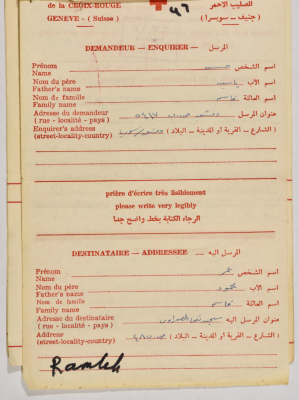 de la CROIX-ROUGE للصليب الاحمر
GENÈVE - (Suisse) (جنيف ــ سويسرا)
47
DEMANDEUR — ENQUIRER — المرسل
Prénom اسم الشخص
Name
Nom du père اسم الأب
Father's name
Nom de famille اسم العائلة
Family name
Adresse du demandeur عنوان المرسل
(rue - localité - pays)
Enquirer's address (الشارع ــ القرية أو المدينة ــ البلاد)
(street-locality-country)
prière d'écrire très lisiblement
please write very legibly
الرجاء الكتابة بخط واضح جدا
DESTINATAIRE — ADDRESSEE — المرسل اليه
Prénom اسم الشخص عمر
Name
Nom du père اسم الأب محمود
Father's name
Nom de famille اسم العائلة
Family name
Adresse du destinataire عنوان المرسل اليه
(rue - localité - pays)
Address (الشارع ــ القرية أو المدينة ــ البلاد)
(street-locality-country)
Ramleh